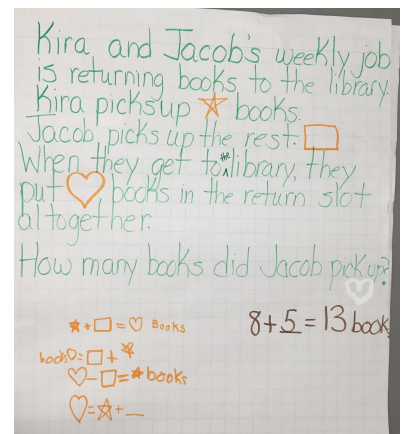 Kira and Jacob's weekly job
is returning books to the library.
Kira picks up ☆ books.
Jacob picks up the rest. □
When they get to the library, they
put ♡ books in the return slot
altogether.
How many books did Jacob pick up?
8+5=13 book
★+□=♡ Books
books♡=□+☆
♡-□=★books
♡=☆+_